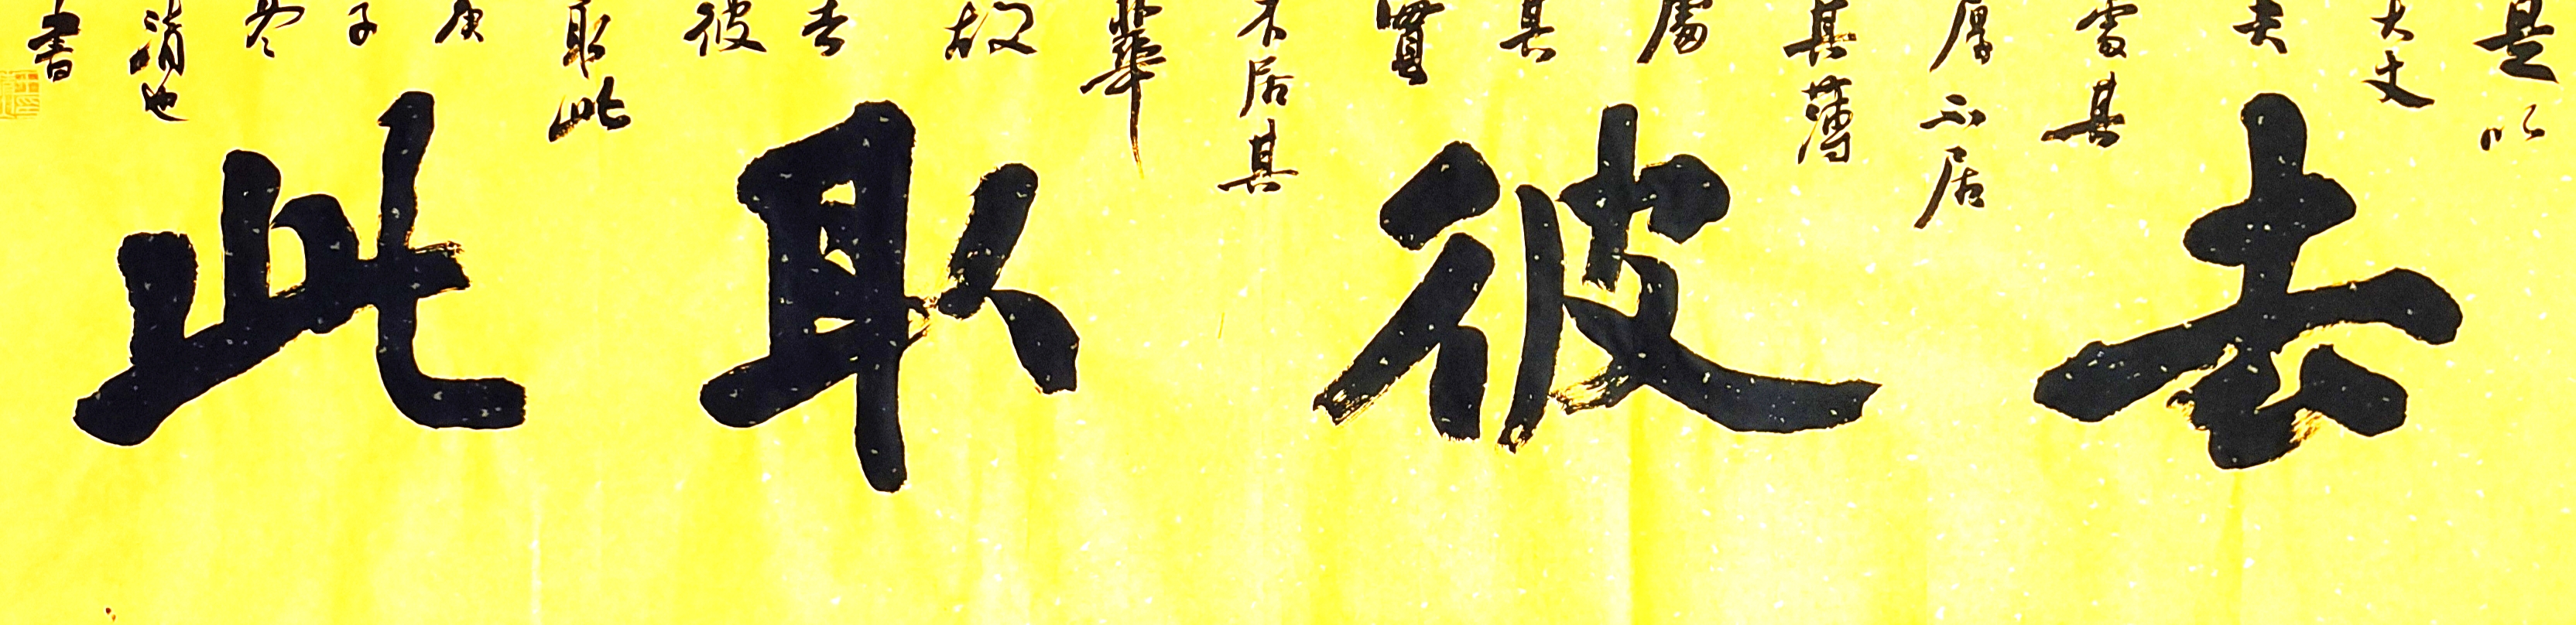 是以
大丈
夫
處其
厚不居
其薄
處
其
實
不居其
華
故
去
彼
取此
庚
子
冬
清也
書
去彼取此